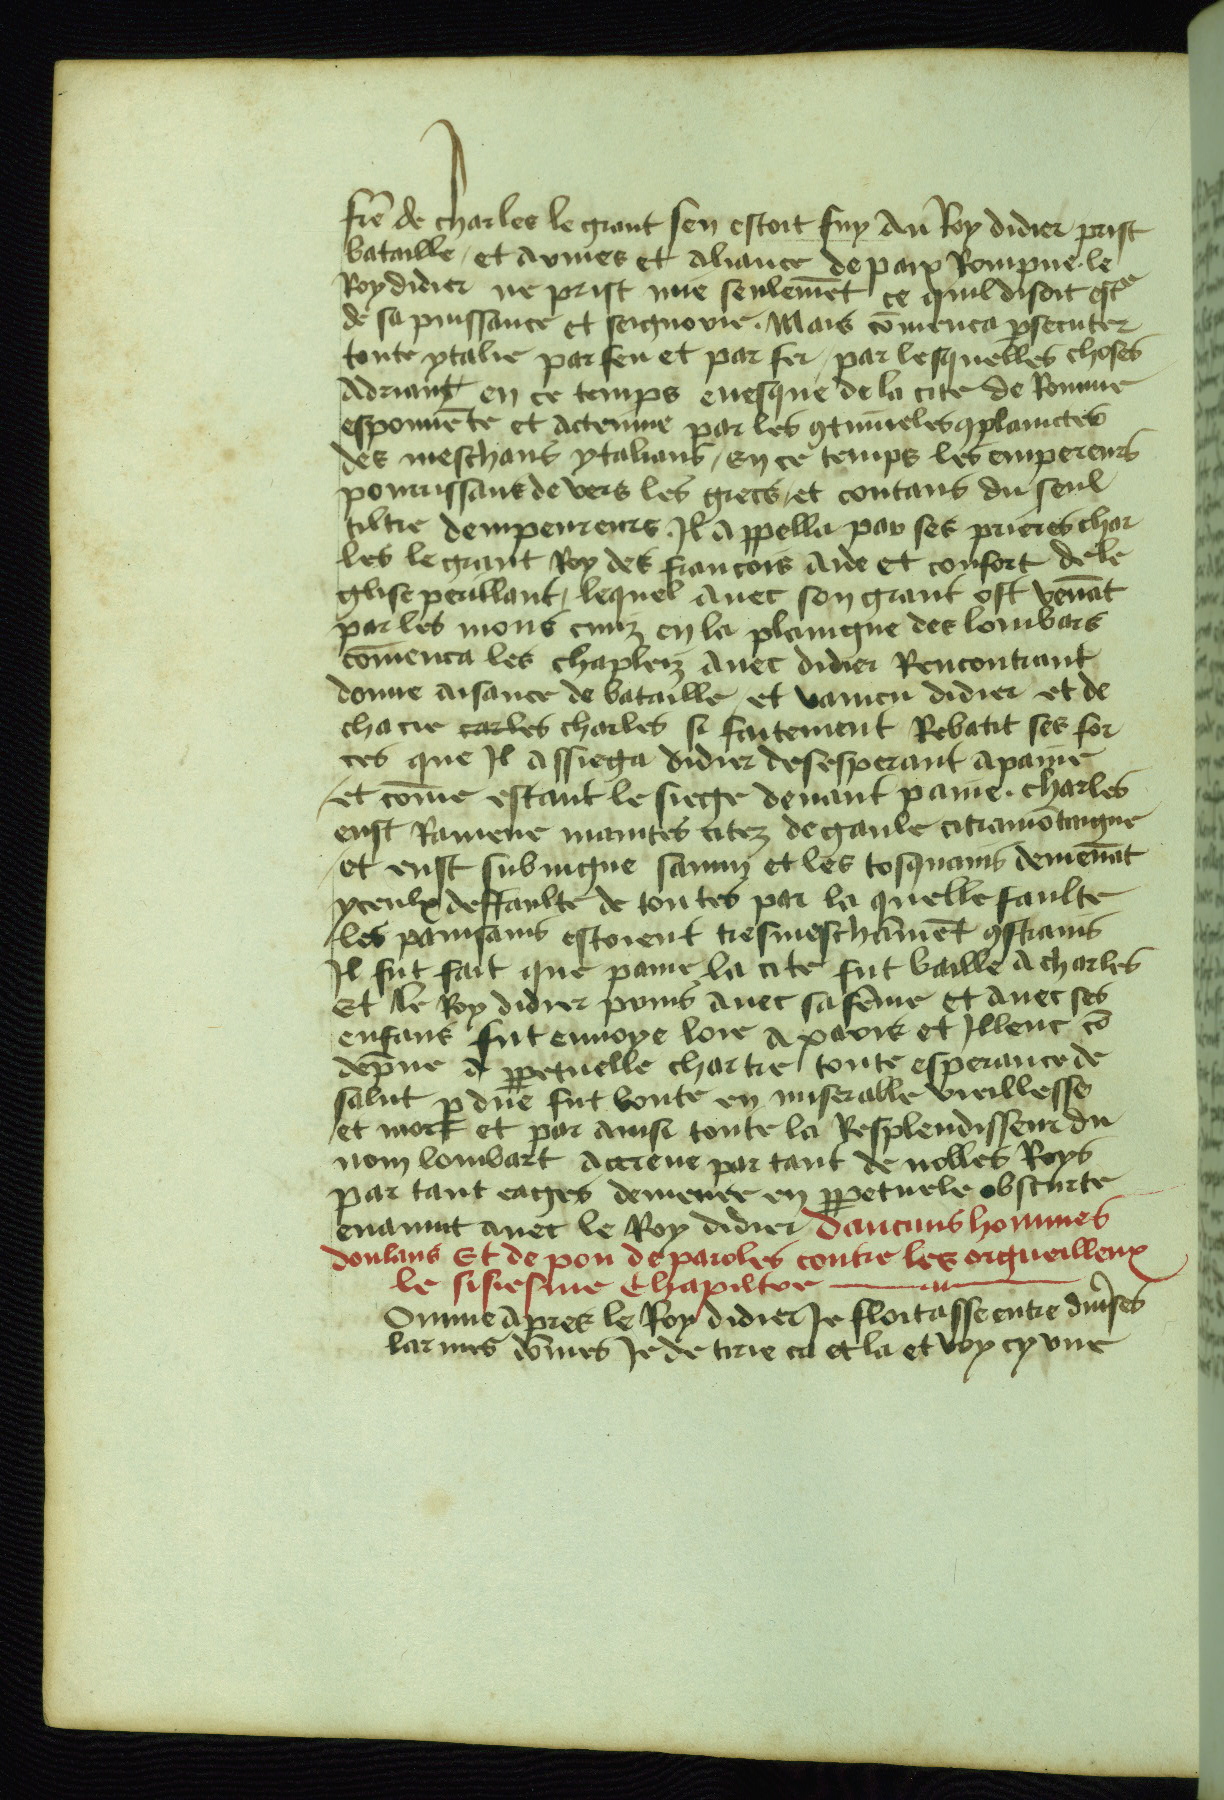 frē de charles le grant sen estoit fuy Au Roy didier prist
bataille / et Armes et Aliance de paix Rompue. le
Roy didier ne prist mie seulemēt ce quil disoit estre
de sa puissance et seignorie. Mais cōmenca psecuter
toute ytalie par feu et par fer / par lesquelles choses
Adriant en ce temps euesque de la cite de Romme
espouuēte et Actenne par les 9tinueles 9plainctes
des meschans ytalians / En ce temps les empereurs
pourrissans de vers les grecs / et contans du seul
tiltre dempeureurs. Il Appella par ses prieres char
les le grant Roy des francois Aide et confort de le
glise perillant / lequel Auec son grant ost venāt
par les mons cuiz en la plaingne des lombars
cōmenca les chapleiz Auec didier Rencontrant
donne aisance de bataille / et vaincu didier et de
chacie carles charles si faitement Rebatit ses for
ces que Il Assiega didier desesperant a pauie
et cōme estant le siege deuant pauie. charles
eust Ramene maintes citez de gaule citramōtaigne
et eust subiugue samiz et les tosquans demenāt
yceulx deffaulte de toutes par la quelle faulte
les pauisans estoient tresmeschāmēt 9strains
Il fut fait que pauie la cite fut baille A charles
Et le Roy didier prins auec sa fēme et auec ses
enfans fut enuoye loie A paris et Illeuc cō
dēpne A ppetuelle chartre toute esperance de
salut pdue fut boute en miserable vieillesse
et mort et par ainsi toute la Resplendisseur du
nom lombart Accreue par tant de nobles Roys
par tant eages demenee en ppetuele obscurte
euanuit auec le Roy didier Daucuns hommes
doulans Et de pou de paroles contre les orgueilleux
le sisiesme Chapiltre
Omme Apres le Roy didier Je floitasse entre diuses
larmes dōmes Je de tirie ca et la et voy cy vne